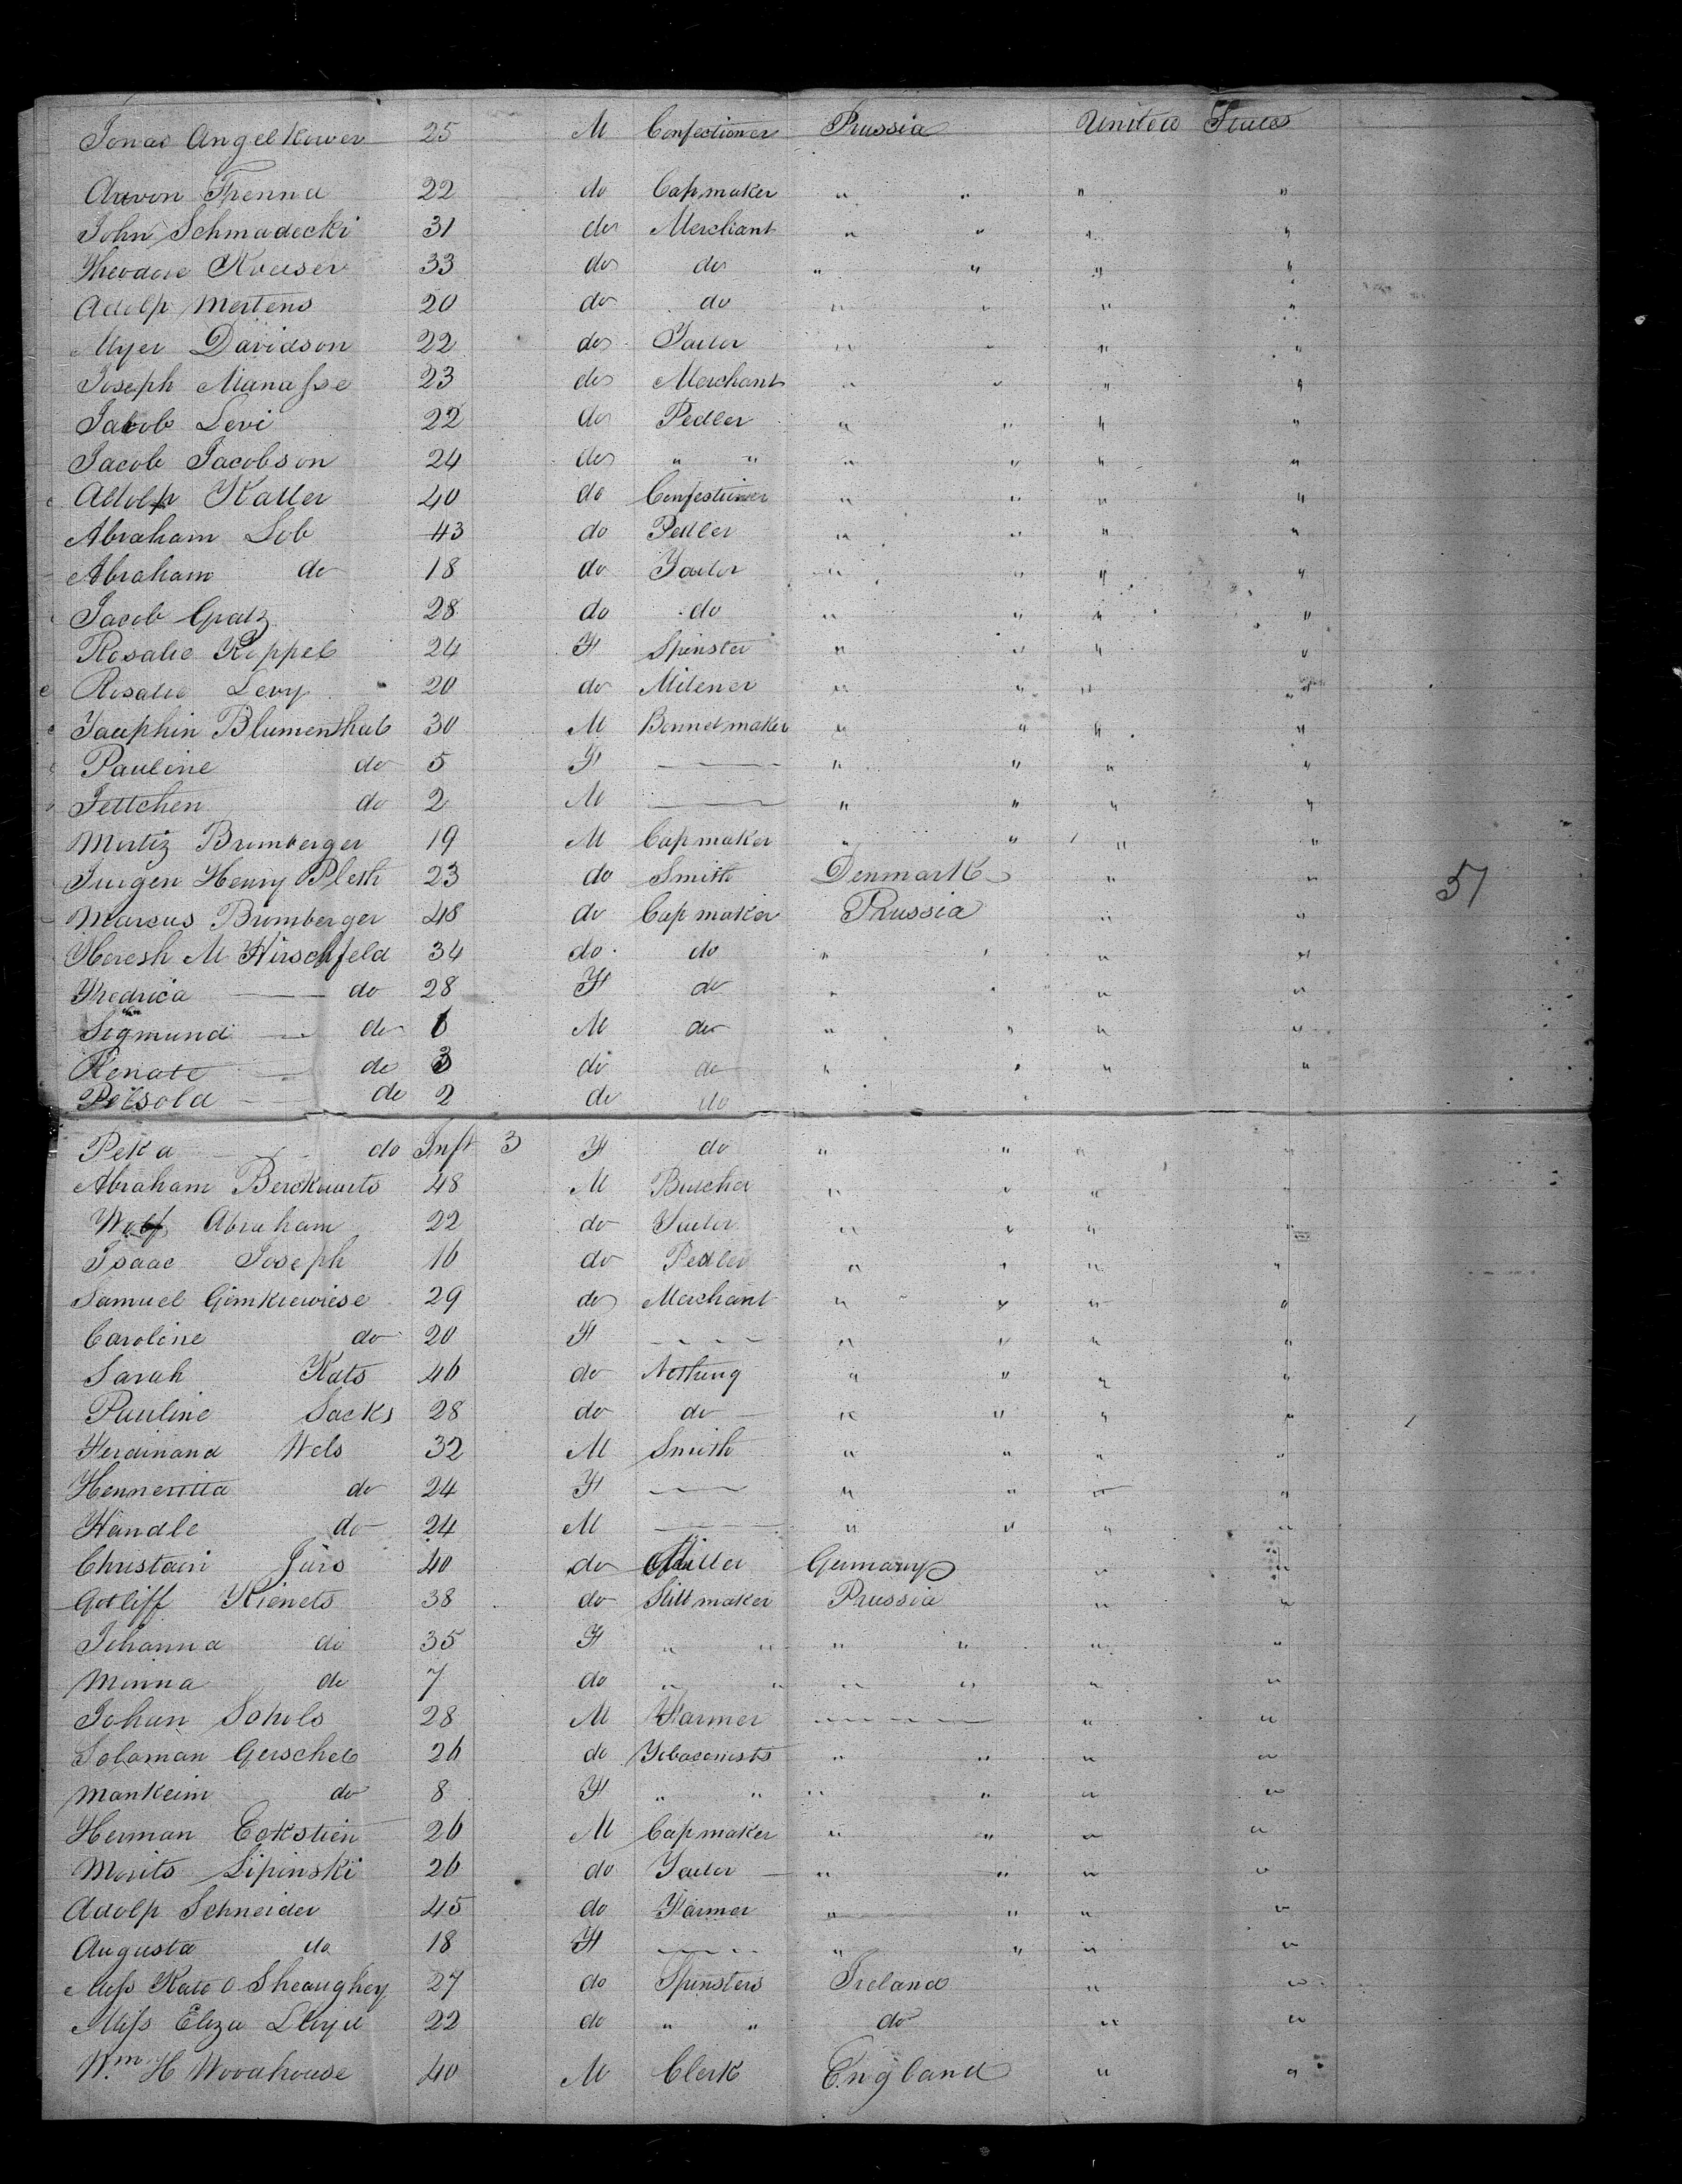 Jonas Angelkower 25 M Confectioner Prussia United States
Aavon Frenna 22 do Capmaker " " " "
John Schmadecki 31 do Merchant " " " "
Theodore Kouser 33 do do " " " "
Adolp Mertens 20 do do " " " "
Myer Davidson 22 do Tailor " " " "
Joseph Manasse 23 do Merchant " " " "
Jacob Levi 22 do Pedler " " " "
Jacob Jacobson 24 do " " " " " "
Adolph Katter 40 do Confectioner " " " "
Abraham Lob 43 do Pedler " " " "
Abraham do 18 do Tailor " " " "
Jacob Gratz 28 do do " " " "
Rosalie Koppel 24 F Spinster " " " "
Rosalie Levy 20 do Milener " " " "
Jaephin Blumenthal 30 M Bonnetmaker " " " "
Pauline do 5 F — " " " "
Jettchen do 2 M — " " " "
Moritz Bromberger 19 M Capmaker " " " "
Juigen Henry Pleth 23 do Smith Denmark " " 57
Marcus Bromberger 48 do Capmaker Prussia " "
Heresh M Hirschfeld 34 do do " " " "
Fredrica — do 28 F do " " " "
Sigmund — do 6 M do " " " "
Renate — do 3 do do " " " "
Petsold — do 2 do do "
Peka — do Inft 3 F do " " " "
Abraham Berckowits 48 M Butcher " " " "
Wolf Abraham 22 do Tailor " " " "
Isaac Joseph 16 do Pedler " " " "
Samuel Gimkiewiese 29 do Merchant " " " "
Caroline do 20 F — " " " "
Sarah Kats 46 do Nothing " " " "
Pauline Sacks 28 do do " " " "
Ferdinand Wels 32 M Smith " " " "
Henneritta do 24 F — " " " "
Handle do 24 M — " " " "
Christain Jürs 40 do Miller Germany " "
Gotliff Kienets 38 do Stillmaker Prussia " "
Johanna do 35 F " " " " " "
Minna do 7 do " " " " " "
Johan Schols 28 M Farmer — " "
Soloman Gerschel 26 do Tobaconists " " " "
Mankeim do 8 F " " " " " "
Herman Eckstien 26 M Capmaker " " " "
Morits Lipinski 26 do Tailor " " " "
Adolp Schneider 45 do Farmer " " " "
Augusta do 18 F — " " " "
Miss Kate O Sheaughey 27 do Spinsters Ireland " "
Miss Eliza Lloyd 22 do " " do " "
Wm H Woodhouse 40 M Clerk England " "